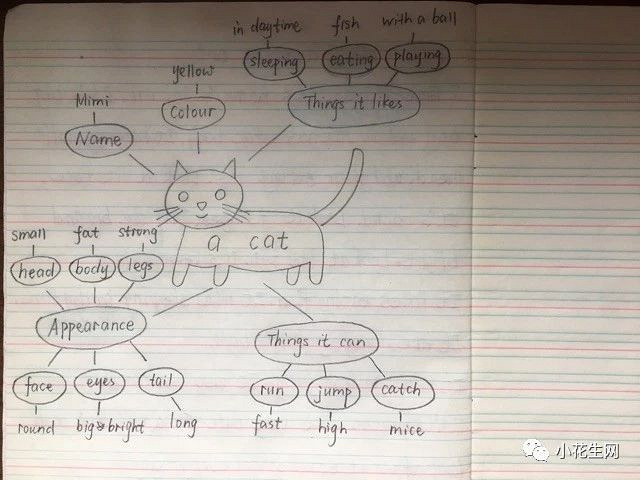 in daytime
fish
with a ball
sleeping
eating
playing
yellow
Things it likes
Mimi
Colour
Name
small
fat
strong
a cat
head
body
legs
Appearance
Things it can
face
eyes
tail
run
jump
catch
round
big & bright
long
fast
high
mice
小花生网